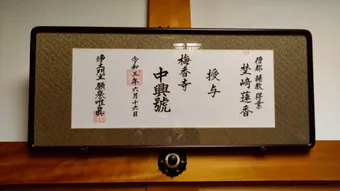 僧都 擬教 得業
埜﨑蓮香
授与
梅香寺
中興號
令和三年六月十六日
浄土門主